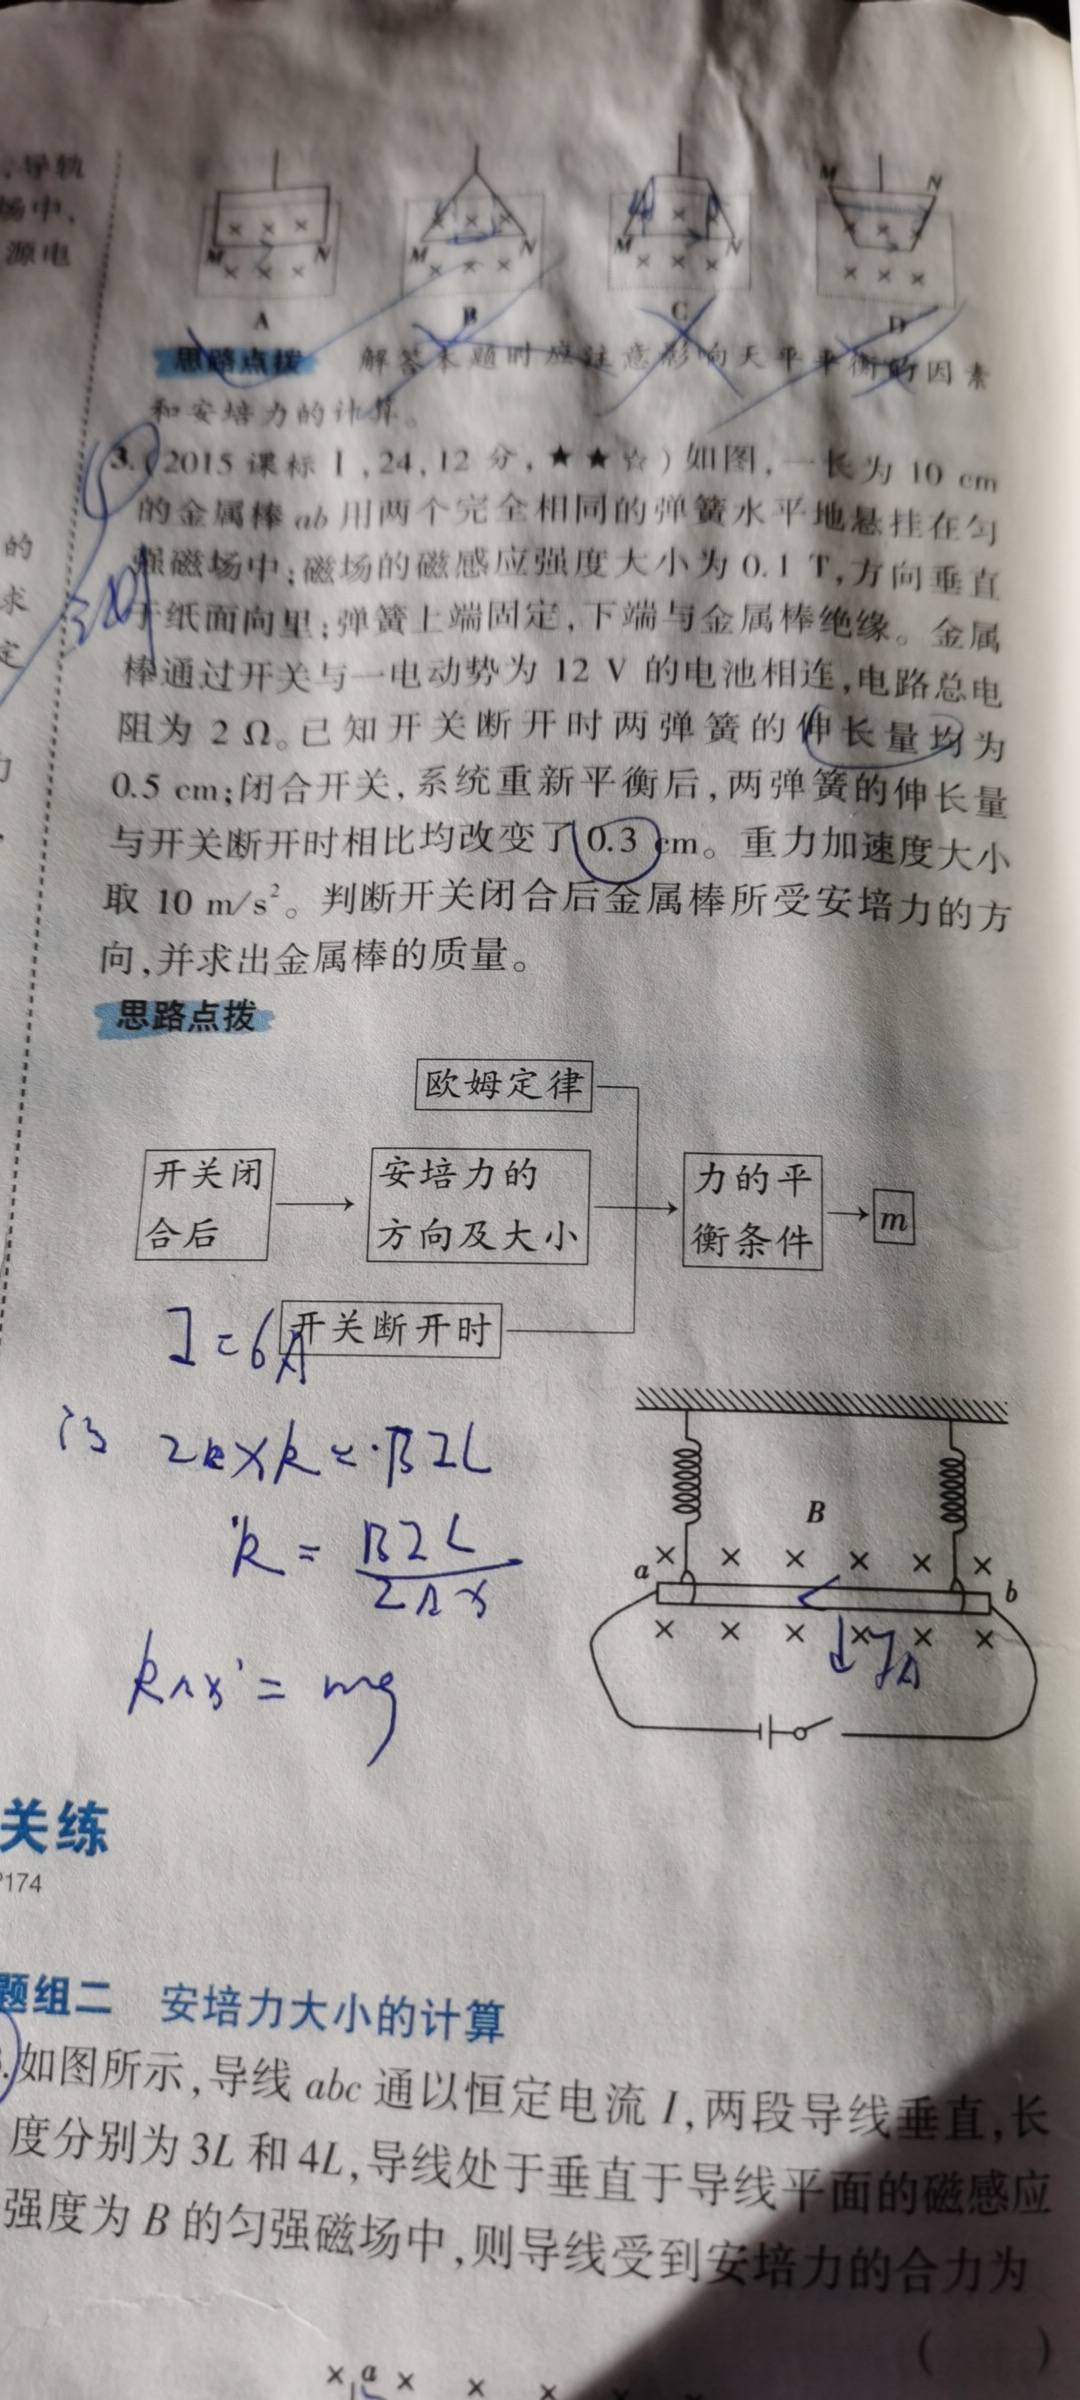 ,导轨
场中,
源电
M N
M N
M N
M N
A
B
C
D
思路点拨 解答本题时应注意影响天平平衡的因素
和安培力的计算。
3.(2015课标Ⅰ,24,12分,★★☆)如图,一长为10 cm
的金属棒ab用两个完全相同的弹簧水平地悬挂在匀
强磁场中;磁场的磁感应强度大小为0.1 T,方向垂直
于纸面向里;弹簧上端固定,下端与金属棒绝缘。金属
棒通过开关与一电动势为12 V的电池相连,电路总电
阻为2 Ω。已知开关断开时两弹簧的伸长量均为
0.5 cm;闭合开关,系统重新平衡后,两弹簧的伸长量
与开关断开时相比均改变了0.3 cm。重力加速度大小
取10 m/s²。判断开关闭合后金属棒所受安培力的方
向,并求出金属棒的质量。
的
求
定
思路点拨
欧姆定律
开关闭
合后
安培力的
方向及大小
力的平
衡条件
m
开关断开时
I=6A
k = BIL
2Δx
kΔx'= mg
B
a
b
关练
P174
题组二 安培力大小的计算
.如图所示,导线abc通以恒定电流I,两段导线垂直,长
度分别为3L和4L,导线处于垂直于导线平面的磁感应
强度为B的匀强磁场中,则导线受到安培力的合力为
( )
a